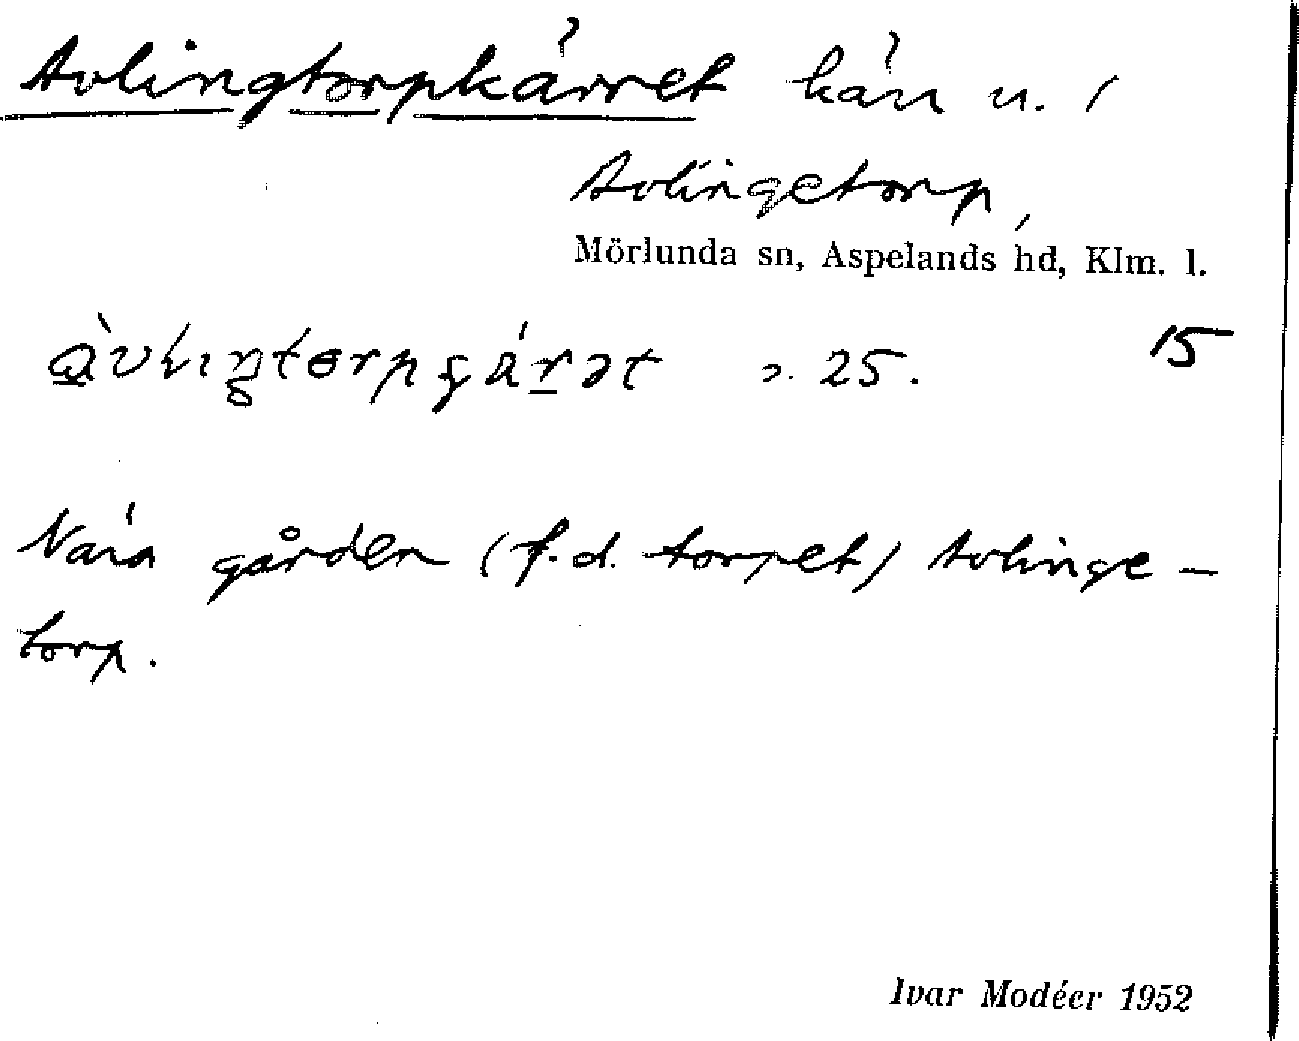 Avlingtorpkärret kärr n. i
Avlingetorp,
Mörlunda sn, Aspelands hd, Klm. l.
25. 15
Nära gården (f.d. torpet) Avlinge-
torp.
Ivar Modéer 1952